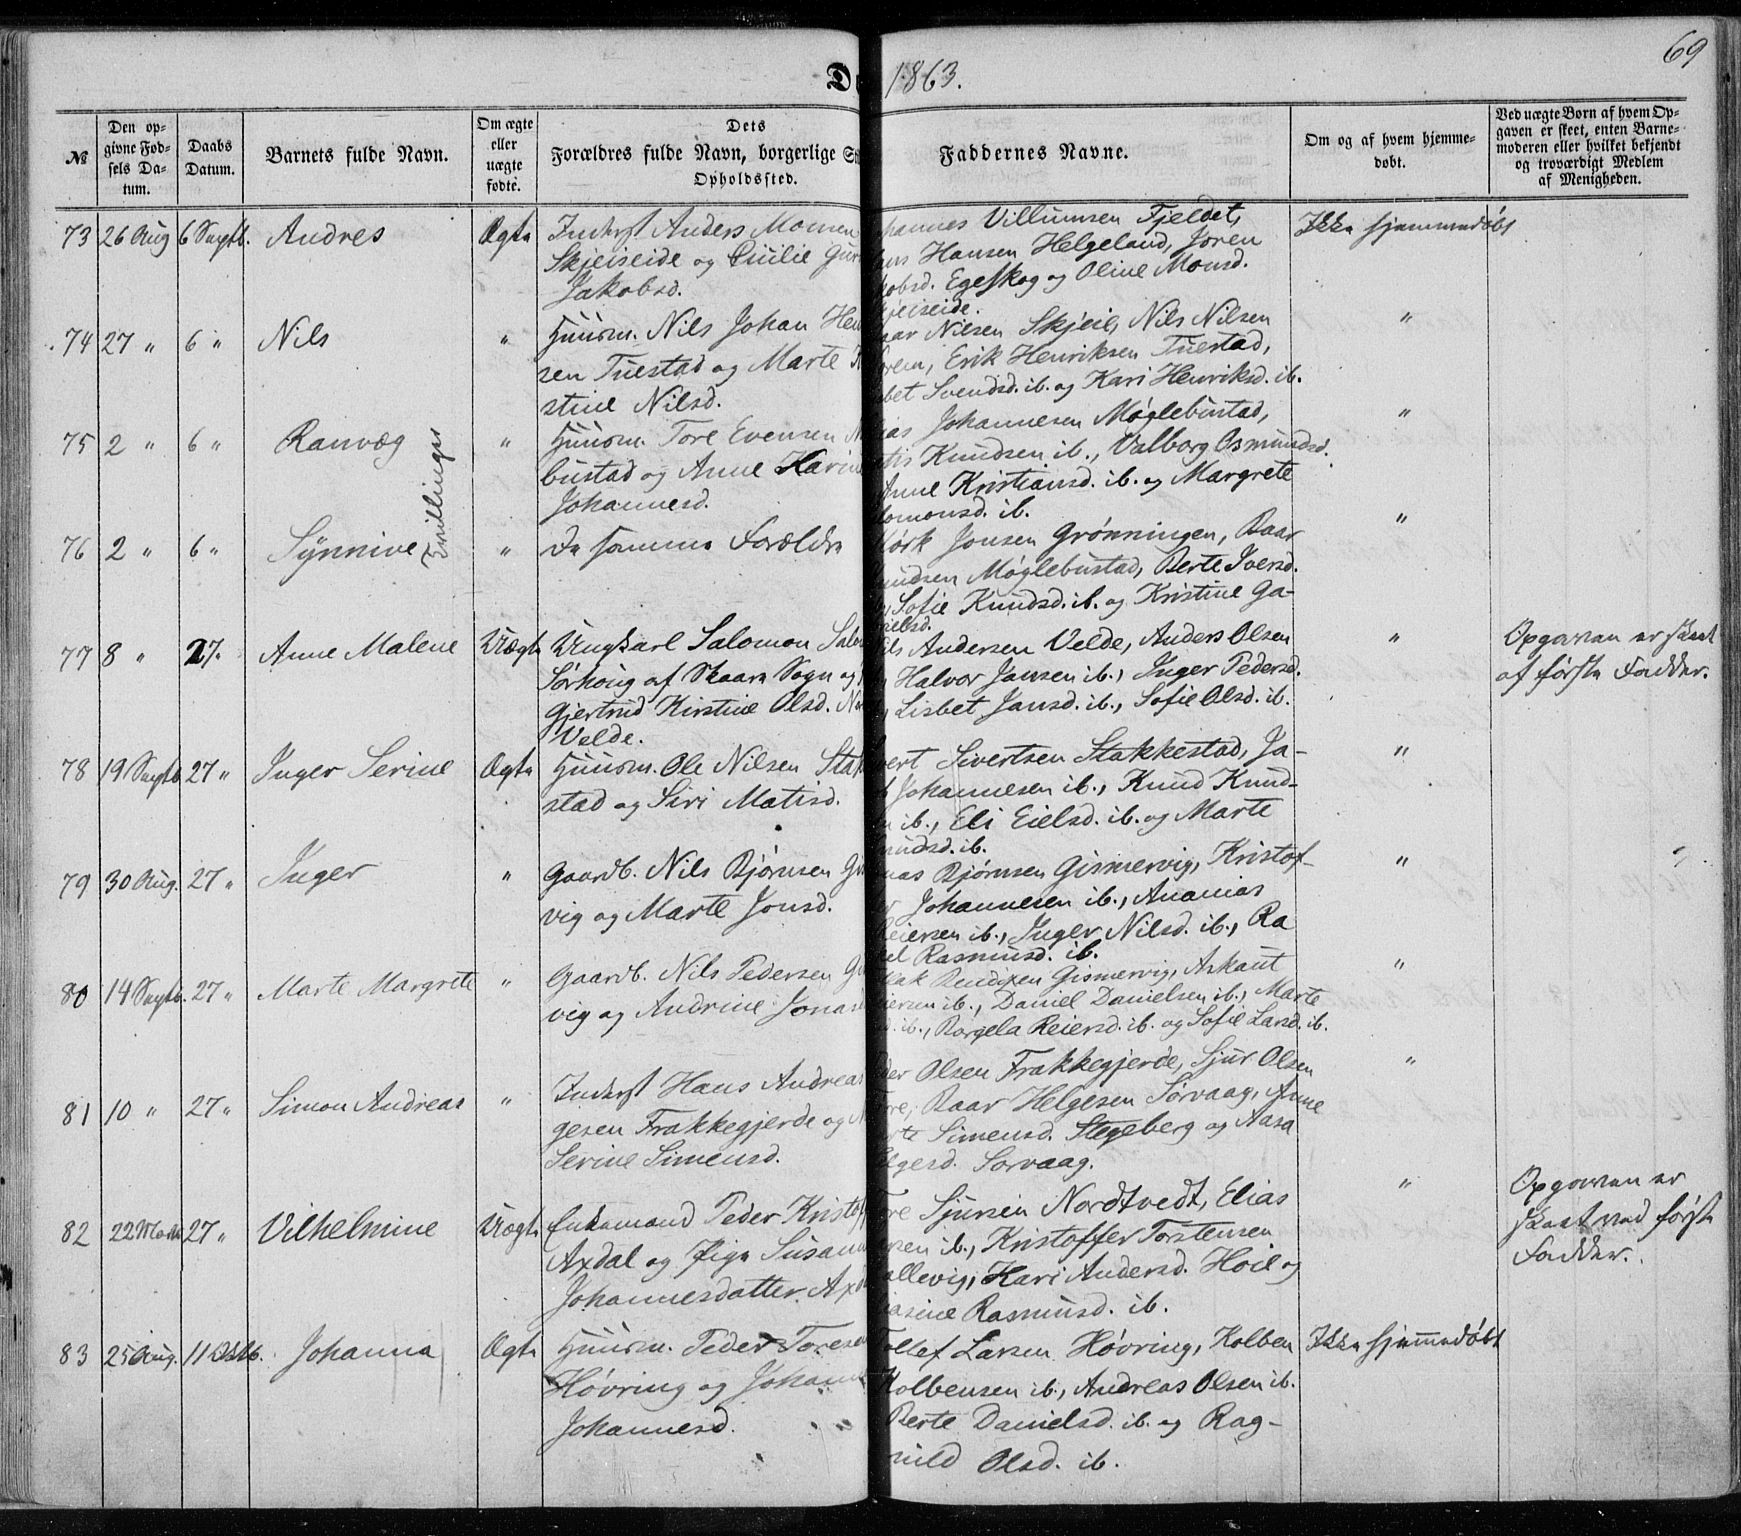 D 1863. 69
№
Den op-
givne Fød-
sels Da-
tum.
Daabs
Datum.
Barnets fulde Navn.
Om ægte
eller
uægte
fødte.
Dets
Forældres fulde Navn, borgerlige S
Opholdssted.
Faddernes Navne.
Om og af hvem hjemme-
døbt.
Ved uægte Børn af hvem Op-
gaven er skeet, enten Barne-
moderen eller hvilket bekjendt
og troværdigt Medlem
af Menigheden.
73 26 Aug 6 Septb. Andres Ægte Inderst Anders Monsen
Skjeiseide og Cicilie Gur
Jakobsd.
hannes Villumsen Fjeldet,
ans Hansen Helgeland, Joren
kobsd. Egeskog og Oline Monsd.
kjeiseide.
Ikke hjemmedøbt
74 27 " 6 " Nils " Huusm. Nils Johan Hen
sen Tuestad og Marte K
stine Nilsd.
aar Nilsen Skjeie, Nils Nilsen
Erik Henriksen Tuestad,
bet Svendsd. ib. og Kari Henriksd. ib.
"
75 2 " 6 " Ranvæg " Huusm. Tore Evensen M
bustad og Anne Karine
Johannesd.
ias Johannesen Møglebustad,
tis Knudsen ib., Valborg Osmundsd.
Anne Kristiansd. ib. og Margrete
lomonsd. ib.
"
Tvillinger
76 2 " 6 " Synnive " De samme Forældre
Mørk Jonsen Grønningen, Baar
nudsen Møglebustad, Berte Iversd.
Sofie Knudsd. ib. og Kristine Ga-
rielsd.
"
77 8 " 27. Anne Malene Uægte Ungkarl Salomon Salo
Sørhoug af Skaare Sogn og
Gjertrud Kirstine Olsd. No
Velde.
ils Andersen Velde, Anders Olsen
Halvor Jansen ib., Inger Pedersd.
Lisbet Jansd. ib., Sofie Olsd. ib.
"
Opgaven er skeet
af første Fadder.
78 19 Septb 27 " Inger Serine Ægte Huusm. Ole Nilsen Stak
stad og Siri Matisd.
vert Sivertsen Stakkestad, Ja-
Johannesen ib., Knud Knud-
n ib., Eli Eielsd. ib. og Marte
nudsd. ib.
"
79 30 Aug. 27 " Inger " Gaardb. Nils Bjørnsen Gis
vig og Marte Jonsd.
nas Bjørnsen Gismervig, Kristof-
er Johannesen ib., Ananias
Reiersen ib., Inger Nilsd. ib., Ra
el Rasmusd. ib.
"
80 14 Septb. 27 " Marte Margrete " Gaardb. Nils Pedersen Gi
vig og Andrine Jonas
sak Bendixen Gismervig, Askaut
eiersen ib., Daniel Danielsen ib., Marte
ib., Borgela Reiersd. ib. og Sofie Larsd. ib.
"
81 10 " 27 " Simon Andreas " Inderst Hans Andreas
gesen Frakkegjerde og
Serine Simensd.
eder Olsen Frakkegjerde, Sjur Olsen
Baar Helgesen Sørvaag, Anne
rte Simensd. Stegeberg og Aasa
elgesd. Sørvaag.
"
82 22 27 " Vilhelmine Uægte Enkemand Peder Kristoff
Axdal og Pige Susann
Johannesdatter Axd
Tore Sjursen Nordtvedt, Elias
rsen ib., Kristoffer Torstensen
allevig, Kari Andersd. Høie og
asine Rasmusd. ib.
"
Opgaven er
skeet ved første
Fadder.
83 25 Aug. 11 Oktb. Johanna Ægte Huusm. Peder Toresen
Høvring og Johann
Johannesd.
ollef Larsen Høvring, Kolben
Kolbensen ib., Andreas Olsen ib.
Berte Danielsd. ib. og Rag-
nild Olsd. ib.
Ikke hjemmedøbt